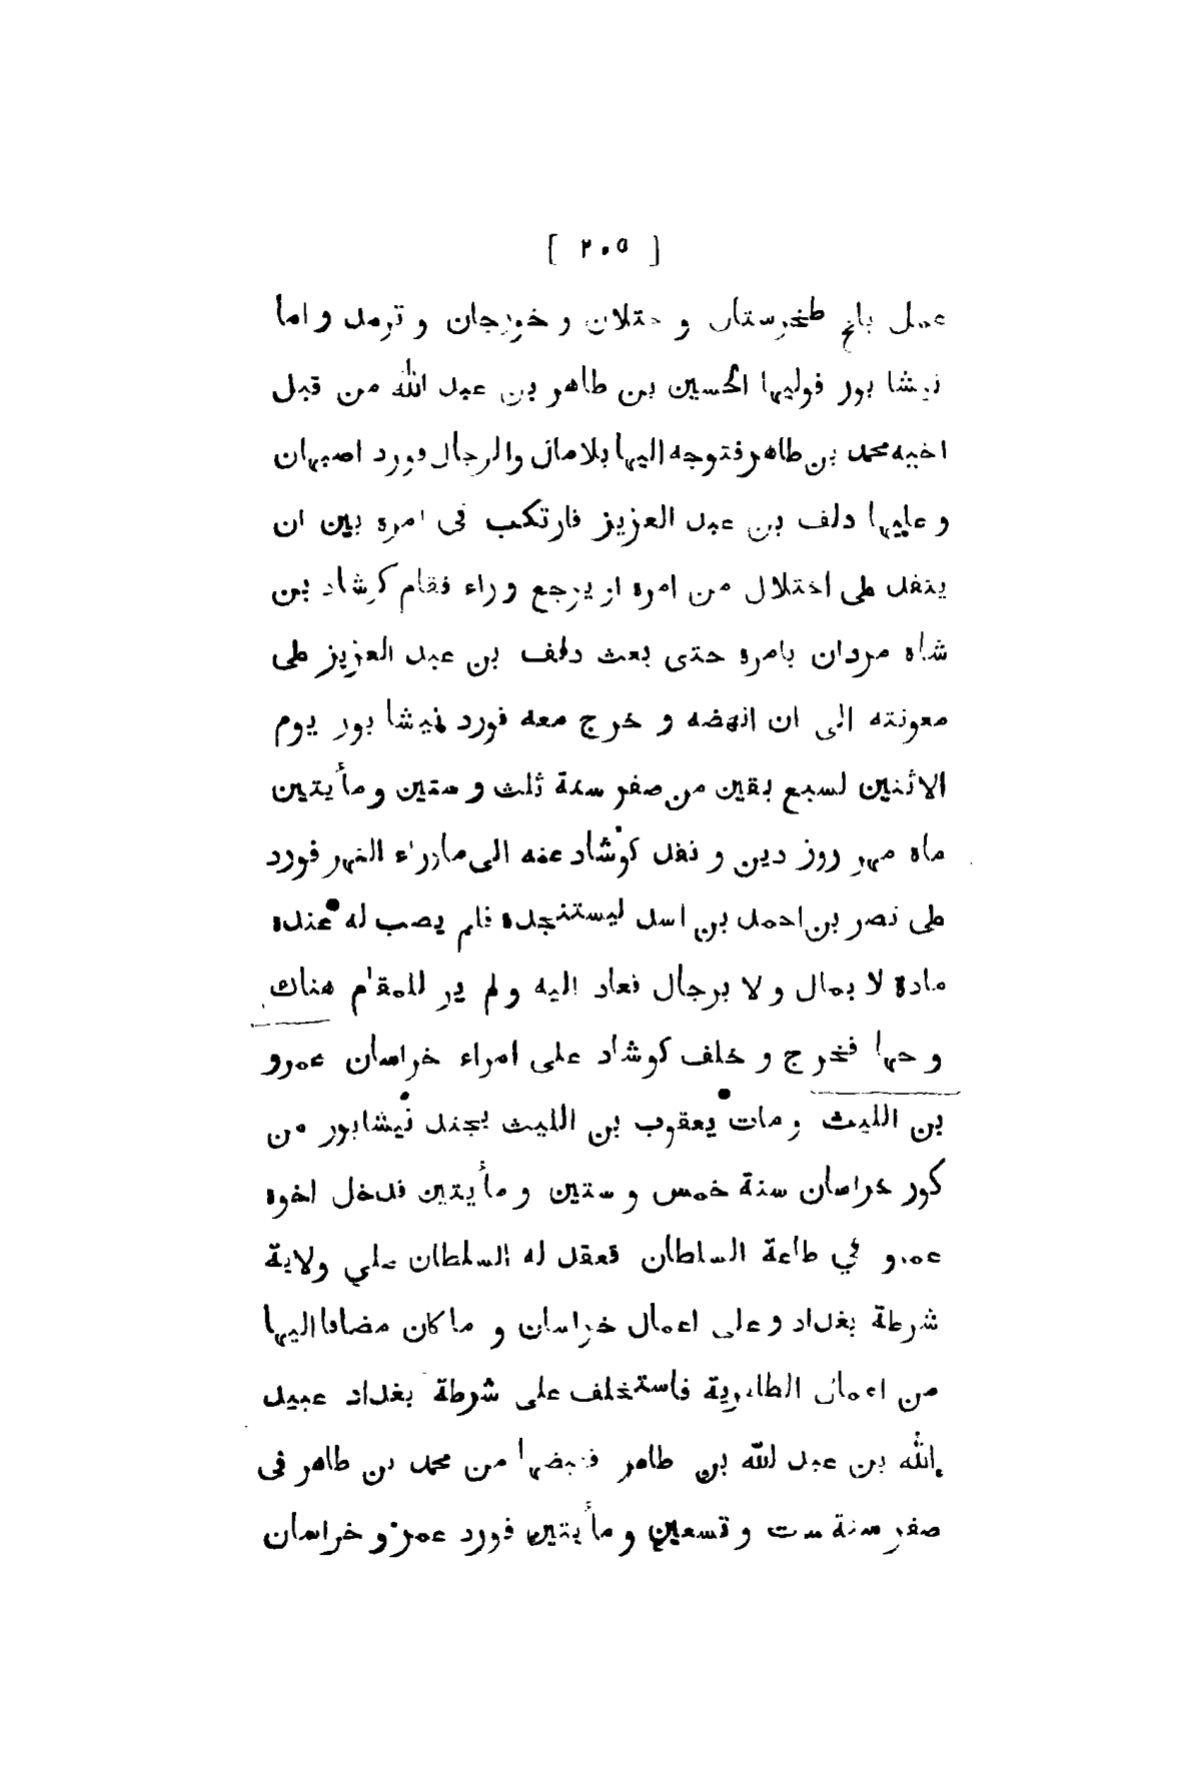 [ ٢٠٥ ]
عمل بلخ طخرستان و ختلان و خوزجان و ترمد و اما
نيشا بور فوليها الحسين بن طاهر بن عبد الله من قبل
اخيه محمد بن طاهر فتوجه اليها بلامال والرجال فورد اصبهان
و عليها دلف بن عبد العزيز فارتكب فى امره بين ان
ينفد على اختلال من امره او يرجع وراء فقام كوشاد بن
شاه مردان بامره حتى بعث دلف بن عبد العزيز على
معونته الى ان انهضه و خرج معه فورد نيشا بور يوم
الاثنين لسبع بقين من صفر سنة ثلث و ستين و مأيتين
ماه مهر روز دين و نفد كوشاد عنه الى ماوراء النهر فورد
على نصر بن احمد بن اسد ليستنجده فلم يصب له عنده
مادة لا بمال و لا برجال فعاد اليه و لم ير للمقام هناك
و جها فخرج و خلف كوشاد على امراء خراسان عمرو
بن الليث و مات يعقوب بن الليث بجند نيشابور من
كور خراسان سنة خمس و ستين و مأيتين فدخل اخوه
عمرو في طاعة السلطان فعقد له السلطان على ولاية
شرطة بغداد و على اعمال خراسان و ما كان مضافا اليها
من اعمال الطاهرية فاستخلف على شرطة بغداد عبيد
الله بن عبد لله بن طاهر فقبضها من محمد بن طاهر فى
صفر سنة ست و تسعين و مأيتين فورد عمرو خراسان